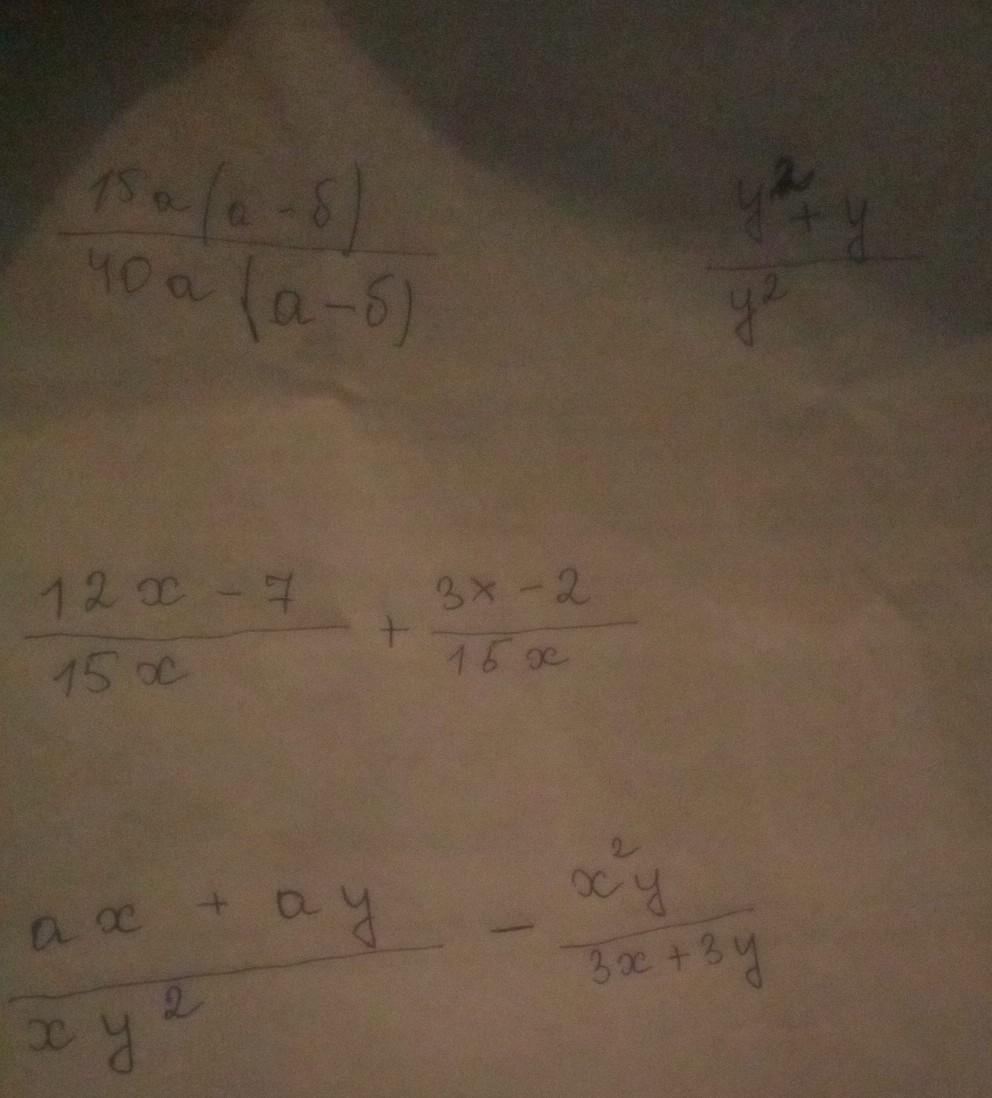 15a(a-б)/40a(a-б) (y²+y)/y²
(12x-7)/15x + (3x-2)/15x
(ax+ay)/xy² - x²y/(3x+3y)